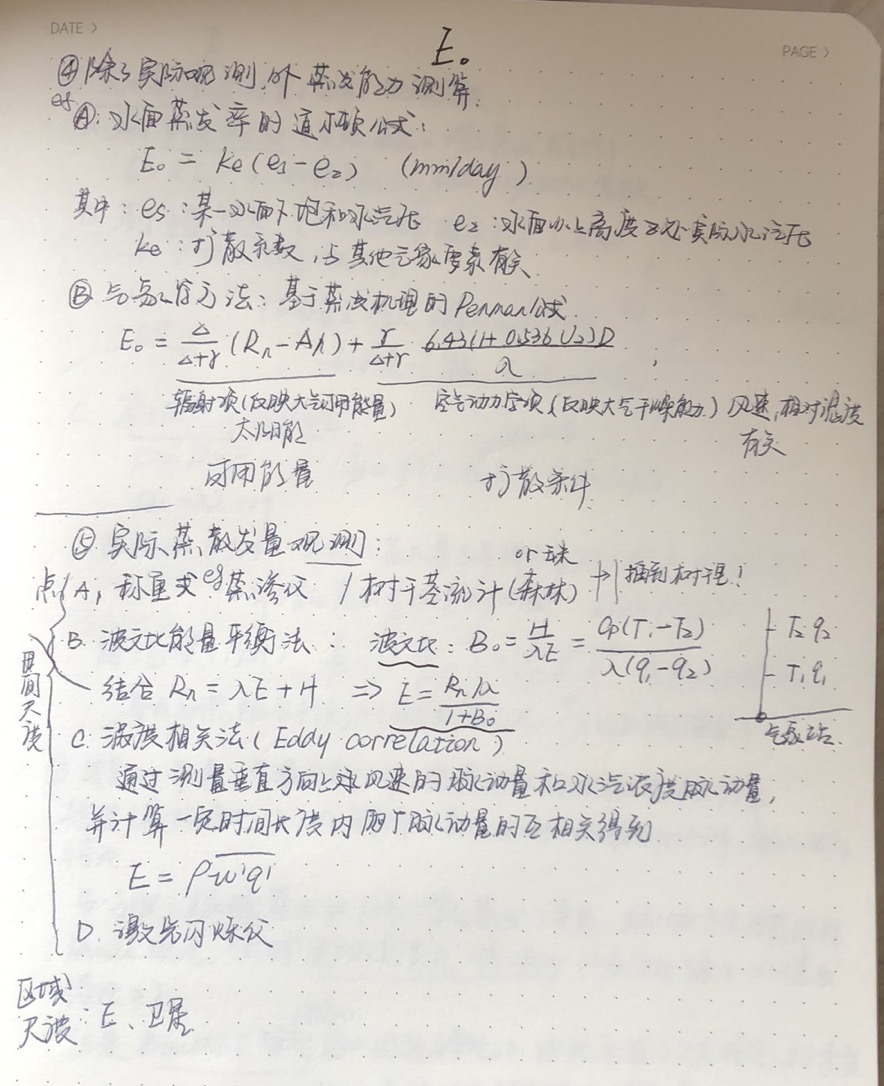 DATE >
PAGE >
E₀
④ 除了实际观测外蒸发能力测算
eg Ⓐ: 水面蒸发率的道尔顿公式:
E₀ = ke(es - e2) (mm/day)
其中: es: 某一水面下饱和水汽压 e2: 水面以上高度z处实际水汽压
ke: 扩散系数, 与其他气象要素有关
Ⓑ 气象学方法: 基于蒸发机理的Penman公式.
E₀ = Δ/(Δ+γ) (Rn - Ah) + γ/(Δ+γ) 6.43(1+0.536U2)D/λ
辐射项(反映大气可用能量) 空气动力学项(反映大气干燥能力) 风速,相对湿度
太阳能 有关
可用能量 扩散条件
⑤ 实际蒸散发量观测:
点 A, 称重式 eg 蒸渗仪 / 树干茎流计(森林) or 珠 → 插到树里!
B. 波文比能量平衡法: 波文比: B₀ = H/λE = Cp(T₁-T₂)/λ(q₁-q₂)
T₂ q₂
T₁ q₁
气象站.
结合 Rn = λE + H ⇒ E = (Rn/λ)/(1+B₀)
田间尺度
C. 涡度相关法(Eddy correlation)
通过测量垂直方向上风速的脉动量和水汽浓度脉动量,
并计算一定时间长度内两个脉动量的互相关得到
E = ρw'q'
D 激光闪烁仪
区域尺度: E、卫星